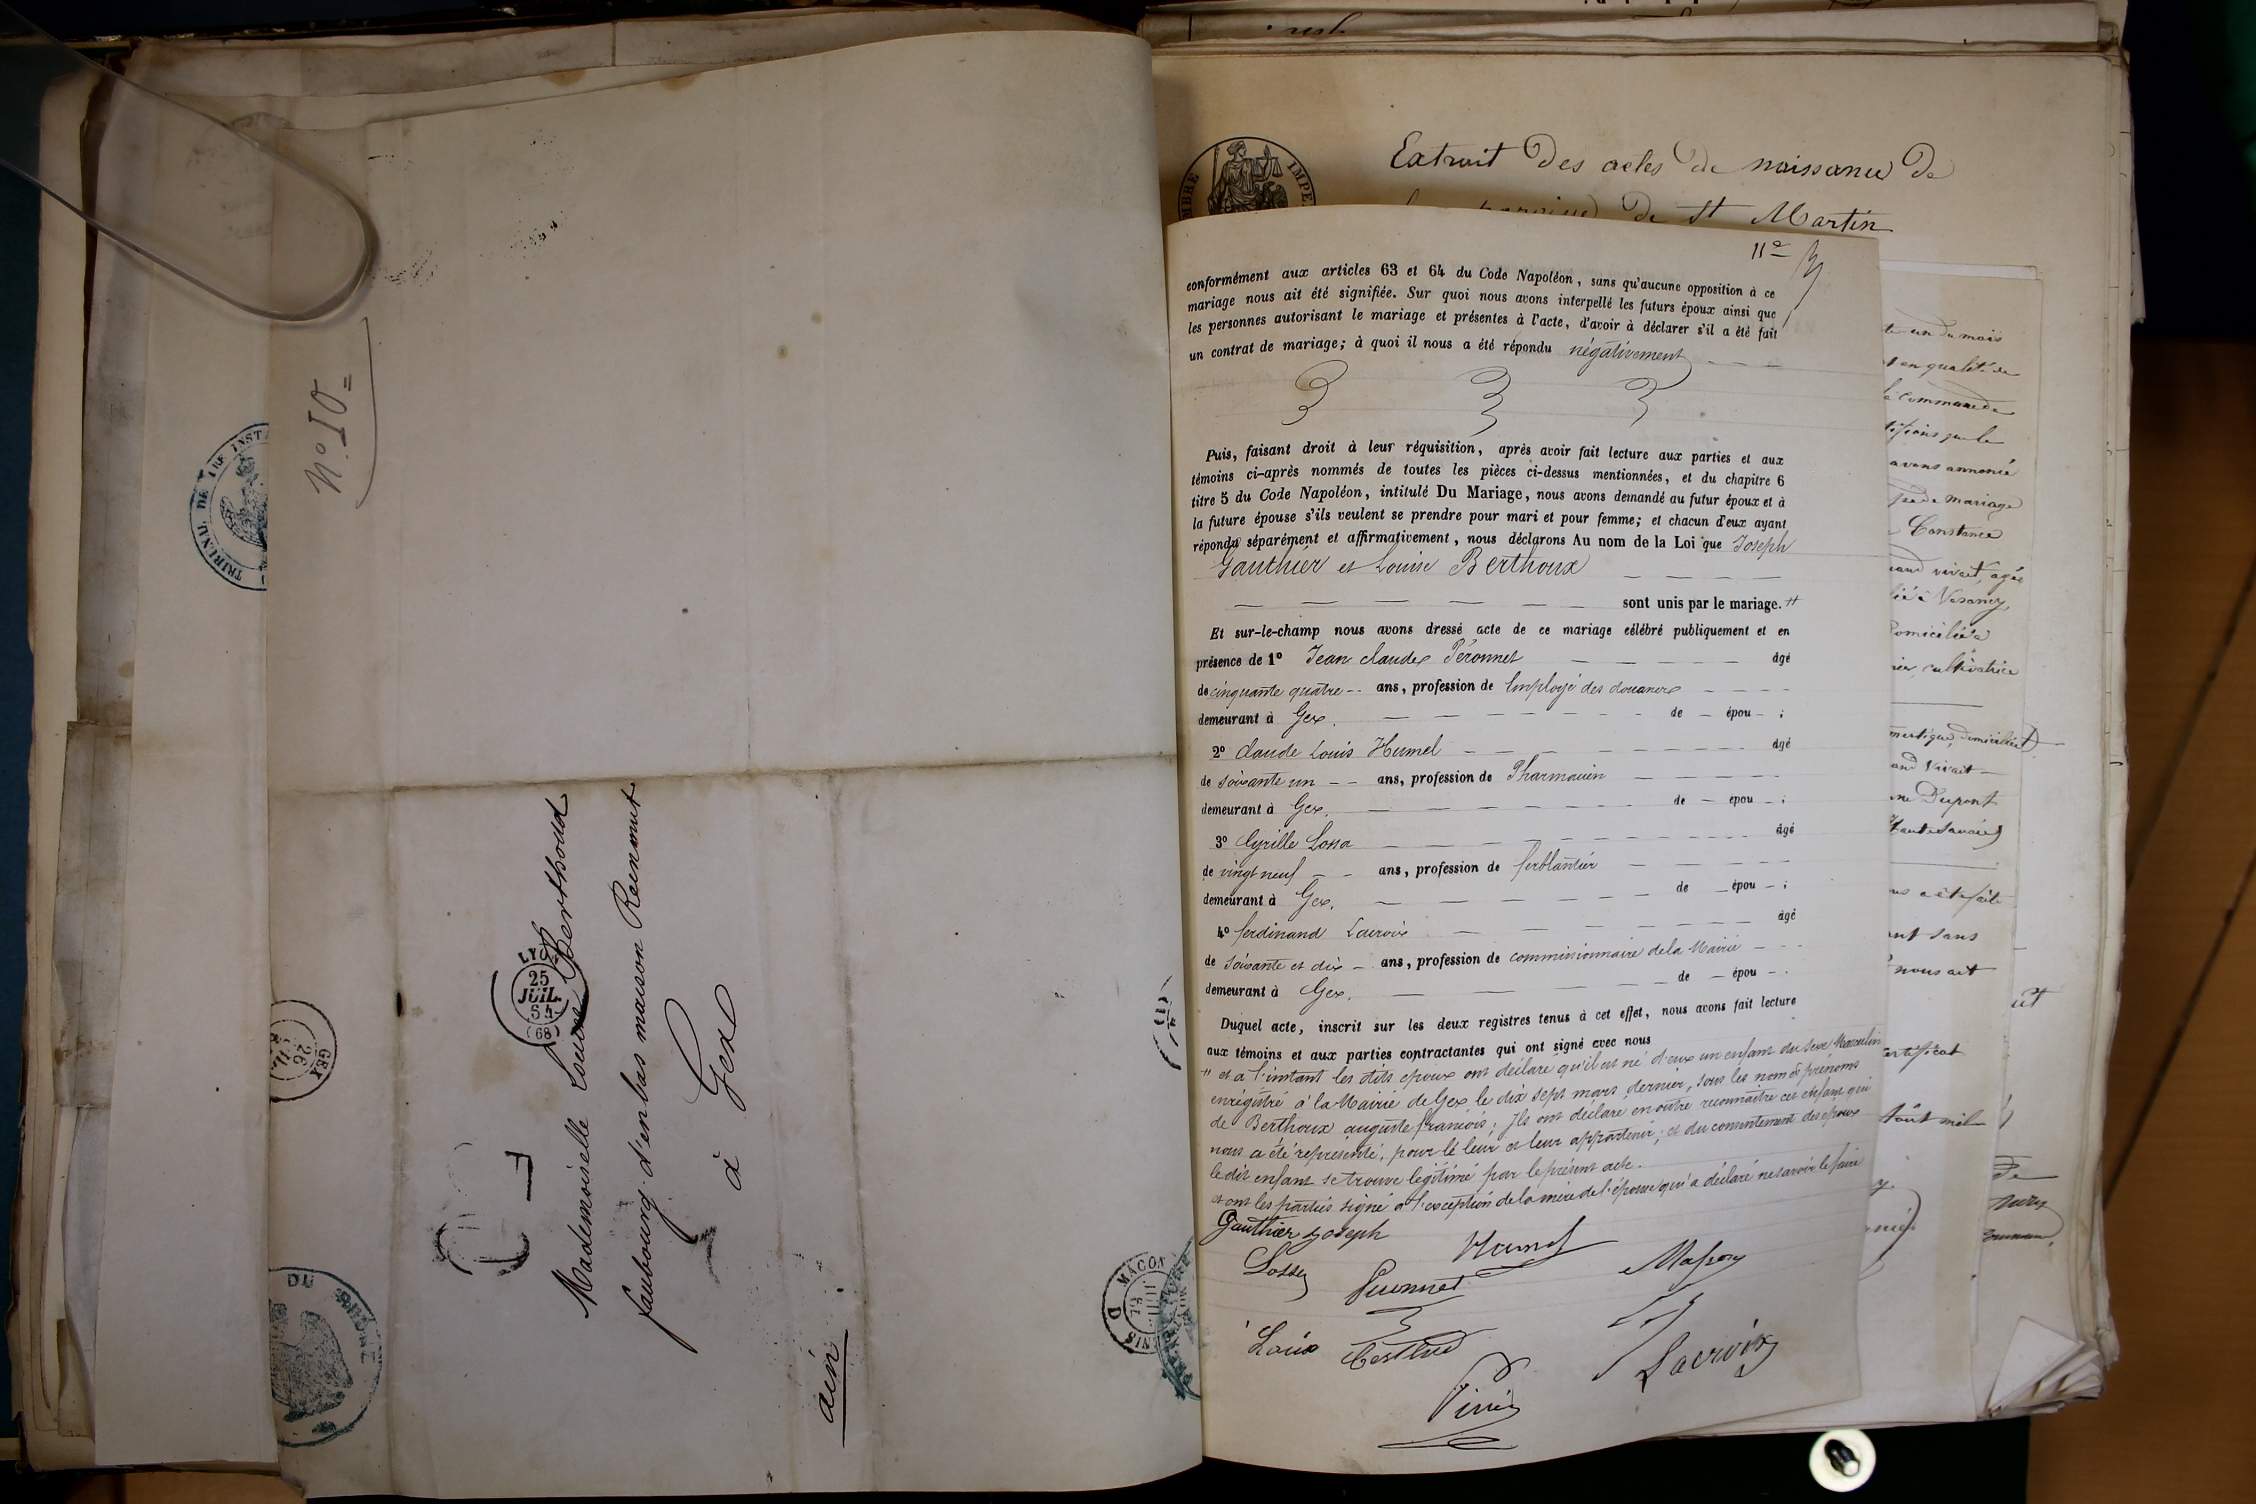 N° 10
Mademoiselle Louise Berthoud
faubourg d'en bas maison Reemont
à Gex
ain
LYON
25
JUIL.
54
(68)
GEX
26
MACON
TRIBUNAL DE 1RE INST
DU
Extrait des actes de naissance de
la paroisse de St Martin
TIMBRE IMPE
11e
conformément aux articles 63 et 64 du Code Napoléon, sans qu'aucune opposition à ce
mariage nous ait été signifiée. Sur quoi nous avons interpellé les futurs époux ainsi que
les personnes autorisant le mariage et présentes à l'acte, d'avoir à déclarer s'il a été fait
un contrat de mariage; à quoi il nous a été répondu négativement
Puis, faisant droit à leur réquisition, après avoir fait lecture aux parties et aux
témoins ci-après nommés de toutes les pièces ci-dessus mentionnées, et du chapitre 6
titre 5 du Code Napoléon, intitulé Du Mariage, nous avons demandé au futur époux et à
la future épouse s'ils veulent se prendre pour mari et pour femme; et chacun d'eux ayant
répondu séparément et affirmativement, nous déclarons Au nom de la Loi que Joseph
Gauthier et Louise Berthoux
sont unis par le mariage. #
Et sur-le-champ nous avons dressé acte de ce mariage célébré publiquement et en
présence de 1° Jean claude Péronnet âgé
de cinquante quatre ans, profession de Employé des douanes
demeurant à Gex. de épou ;
2° Claude Louis Humel âgé
de soixante un ans, profession de Pharmacien
demeurant à Gex. de épou ;
3° Cyrille Lossa âgé
de vingt neuf ans, profession de ferblantier
demeurant à Gex. de épou ;
4° ferdinand Lacroix âgé
de soixante et dix ans, profession de commissionnaire de la Mairie
demeurant à Gex. de épou
Duquel acte, inscrit sur les deux registres tenus à cet effet, nous avons fait lecture
aux témoins et aux parties contractantes qui ont signé avec nous
# et a l'instant les dits epoux ont déclaré qu'il est né d'eux un enfant du sexe Masculin
enrégistré a la Mairie de Gex le dix sept mars dernier, sous les nom & prénoms
de Berthoux auguste françois; Ils ont déclaré en outre reconnaitre cet enfant qui
nous a été représenté, pour le leur et leur appartenir; et du consentement des epoux
le dit enfant se trouve légitimé par le présent acte.
et ont les parties signé a l'exception de la mère de l'épouse qui a déclaré ne savoir le faire
Gauthier Joseph
Humel
Péronnet
Lacroix
te un du mois
en qualité de
la commune de
avons annoncé
mariage
Constance
vivait, agée
à Vesancy,
domiciliée
cultivatrice
domiciliée
vivait
Dupont
Haute Savoie
sans
nous ait
certificat
mil